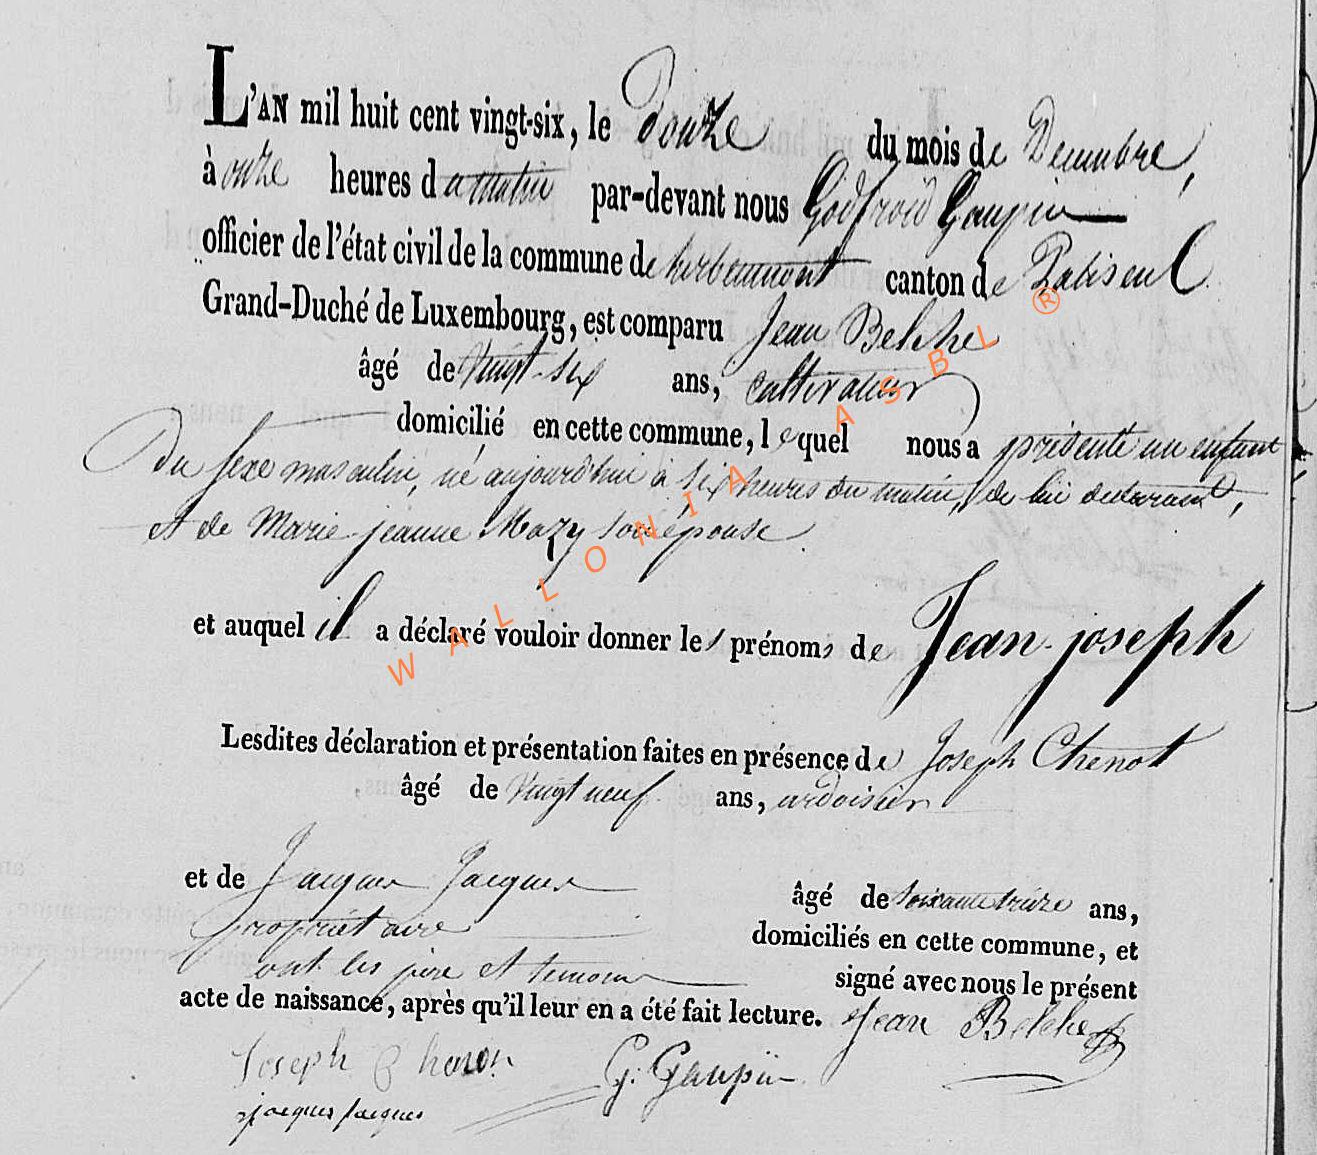 L'AN mil huit cent vingt-six, le Douze du mois de Decembre,
à onze heures du matin par-devant nous Godfroid Goupin
officier de l'état civil de la commune de herbeumont canton de Paliseul
Grand-Duché de Luxembourg, est comparu Jean Belche
âgé de Vingt-Six ans, Cultivateur
domicilié en cette commune, lequel nous a présenté un enfant
Du Sexe masculin, né aujourd'hui à Six heures du matin, de lui déclarant,
et de Marie jeanne Mazy son épouse.
et auquel il a déclaré vouloir donner les prénoms de Jean-joseph
Lesdites déclaration et présentation faites en présence de Joseph Chenot
âgé de Vingt neuf ans, ardoisier
et de Jacques Jacques âgé de soixante treize ans,
propriétaire domiciliés en cette commune, et
ont les père et temoins signé avec nous le présent
acte de naissance, après qu'il leur en a été fait lecture. Jean Belche
Joseph G. Goupin
jacques jacques
WALLONIA ASBL ®